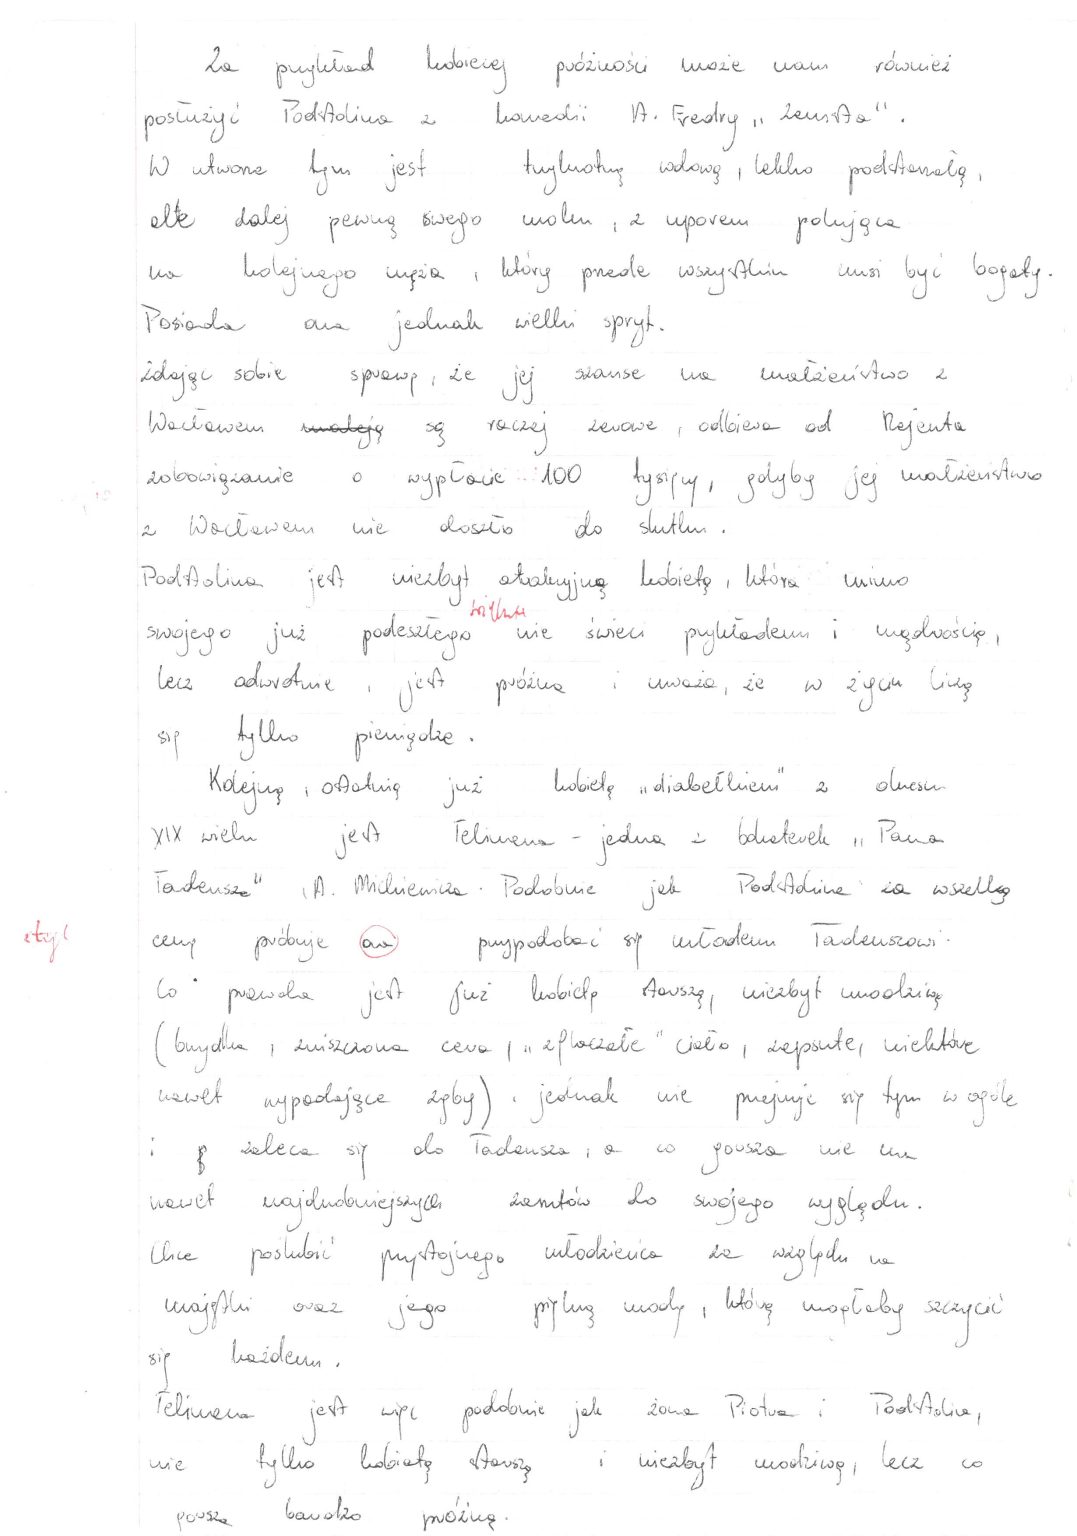 Za przykład kobiecej próżności może nam również
posłużyć Podstolina z komedii A. Fredry „Zemsta".
W utworze tym jest trzykrotną wdową, lekko podstarzałą,
ale dalej pewną swego uroku, z uporem polująca
na kolejnego męża, który przede wszystkim musi być bogaty.
Posiada ona jednak wielki spryt.
Zdając sobie sprawę, że jej szanse na małżeństwo z
Wacławem maleją są raczej zerowe, odbiera od Rejenta
zobowiązanie o wypłacie 100 tysięcy, gdyby jej małżeństwo
z Wacławem nie doszło do skutku.
Podstolina jest niezbyt atrakcyjną kobietą, która mimo
wieku
swojego już podeszłego nie świeci przykładem i mądrością,
lecz odwrotnie, jest próżna i uważa, że w życiu liczą
się tylko pieniądze.
Kolejną, ostatnią już kobietą „diabełkiem" z okresu
XIX wieku jest Telimena - jedna z bohaterek „Pana
Tadeusza" A. Mickiewicza. Podobnie jak Podstolina za wszelką
styl
cenę próbuje ona przypodobać się młodemu Tadeuszowi.
Co prawda jest już kobietą starszą, niezbyt urodziwą
(brzydka, zniszczona cera, „sflaczałe" ciało, zepsute, niektóre
nawet wypadające zęby), jednak nie przejmuje się tym w ogóle
i zaleca się do Tadeusza, a co gorsza nie ma
nawet najdrobniejszych zarzutów do swojego wyglądu.
Chce poślubić przystojnego młodzieńca ze względu na
majątki oraz jego piękną urodę, którą mogłaby szczycić
się każdemu.
Telimena jest więc podobnie jak żona Piotra i Podstolina,
nie tylko kobietą starszą i niezbyt urodziwą, lecz co
gorsza bardzo próżną.